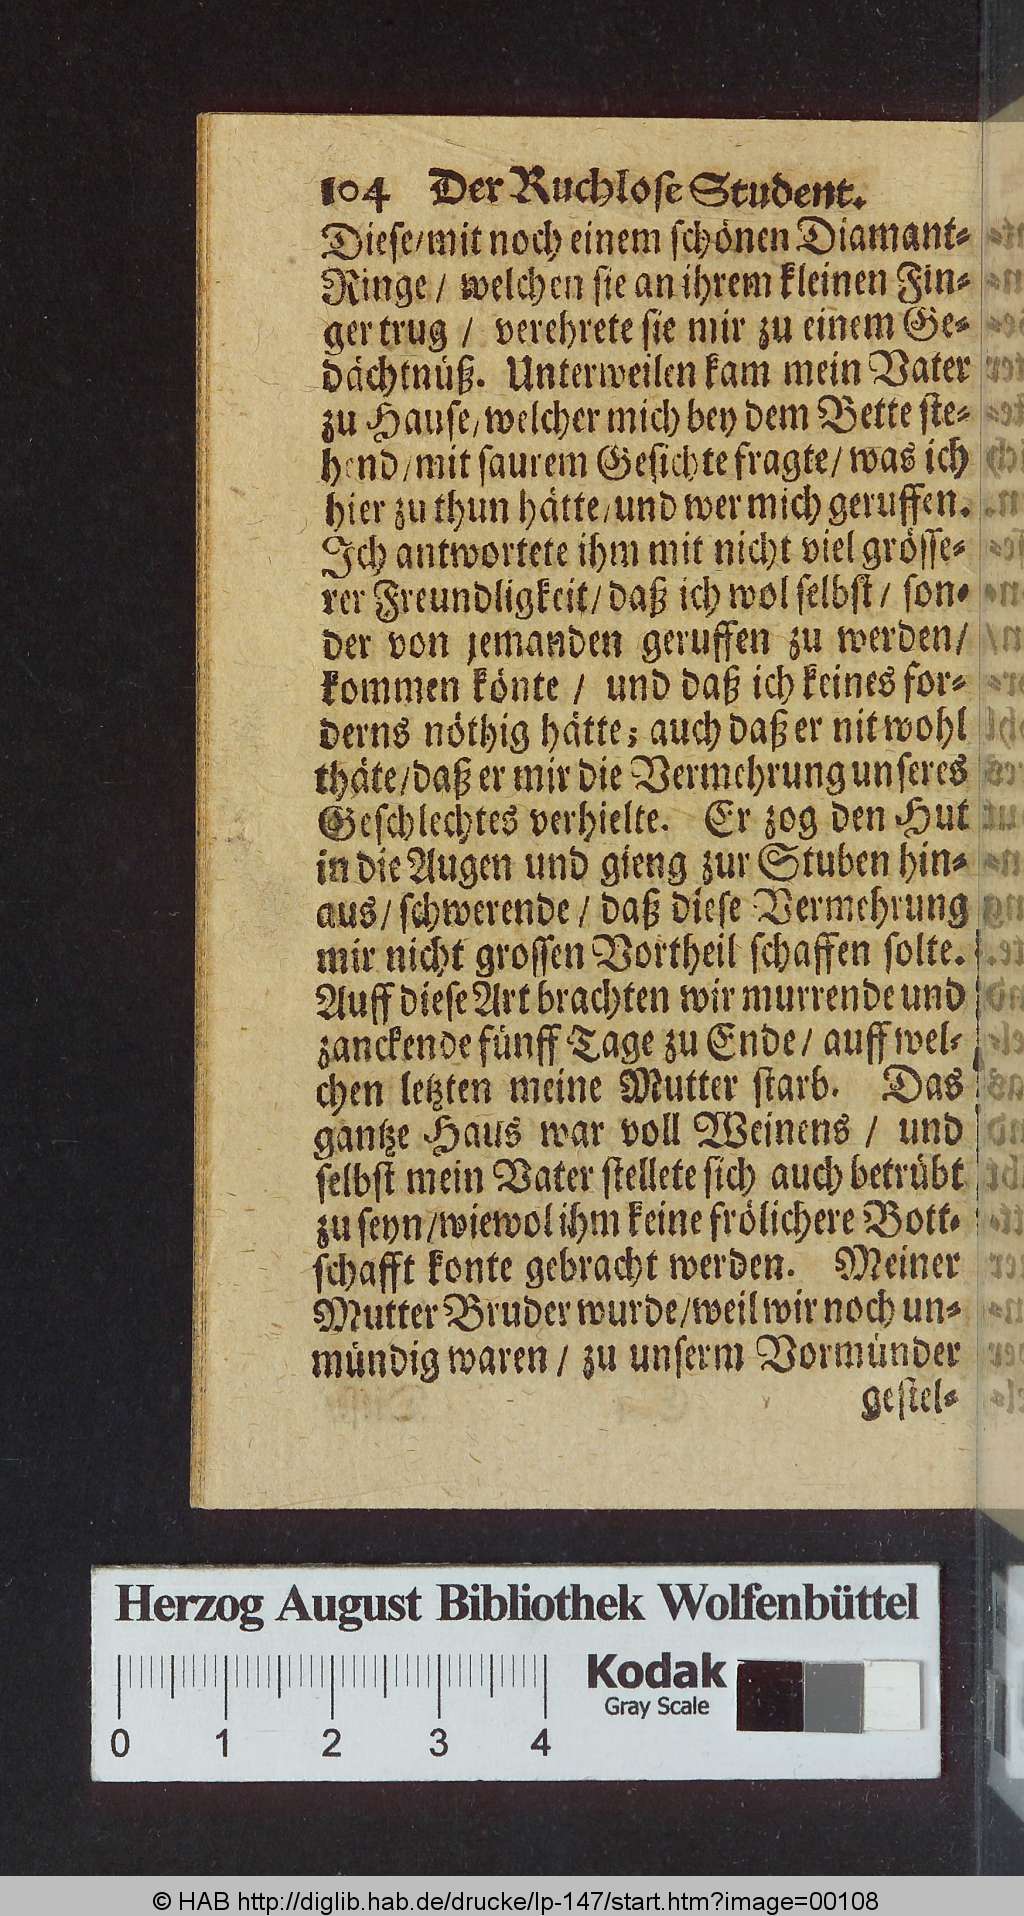 104 Der Ruchlose Student.
Diese/mit noch einem schönen Diamant-
Ringe / welchen sie an ihrem kleinen Fin-
ger trug / verehrete sie mir zu einem Ge-
dächtnüß. Unterweilen kam mein Vater
zu Hause/welcher mich bey dem Bette ste-
hend/mit saurem Gesichte fragte/ was ich
hier zu thun hätte/und wer mich geruffen.
Ich antwortete ihm mit nicht viel grösse-
rer Freundligkeit/daß ich wol selbst/ son-
der von jemanden geruffen zu werden/
kommen könte / und daß ich keines for-
derns nöthig hätte; auch daß er nit wohl
thäte/daß er mir die Vermehrung unseres
Geschlechtes verhielte. Er zog den Hut
in die Augen und gieng zur Stuben hin-
aus/schwerende / daß diese Vermehrung
mir nicht grossen Vortheil schaffen solte.
Auff diese Art brachten wir murrende und
zanckende fünff Tage zu Ende/ auff wel-
chen letzten meine Mutter starb. Das
gantze Haus war voll Weinens / und
selbst mein Vater stellete sich auch betrübt
zu seyn/wiewol ihm keine frölichere Bott-
schafft konte gebracht werden. Meiner
Mutter Bruder wurde/weil wir noch un-
mündig waren / zu unserm Vormünder
gestel-
Herzog August Bibliothek Wolfenbüttel
Kodak
Gray Scale
0 1 2 3 4
© HAB http://diglib.hab.de/drucke/lp-147/start.htm?image=00108